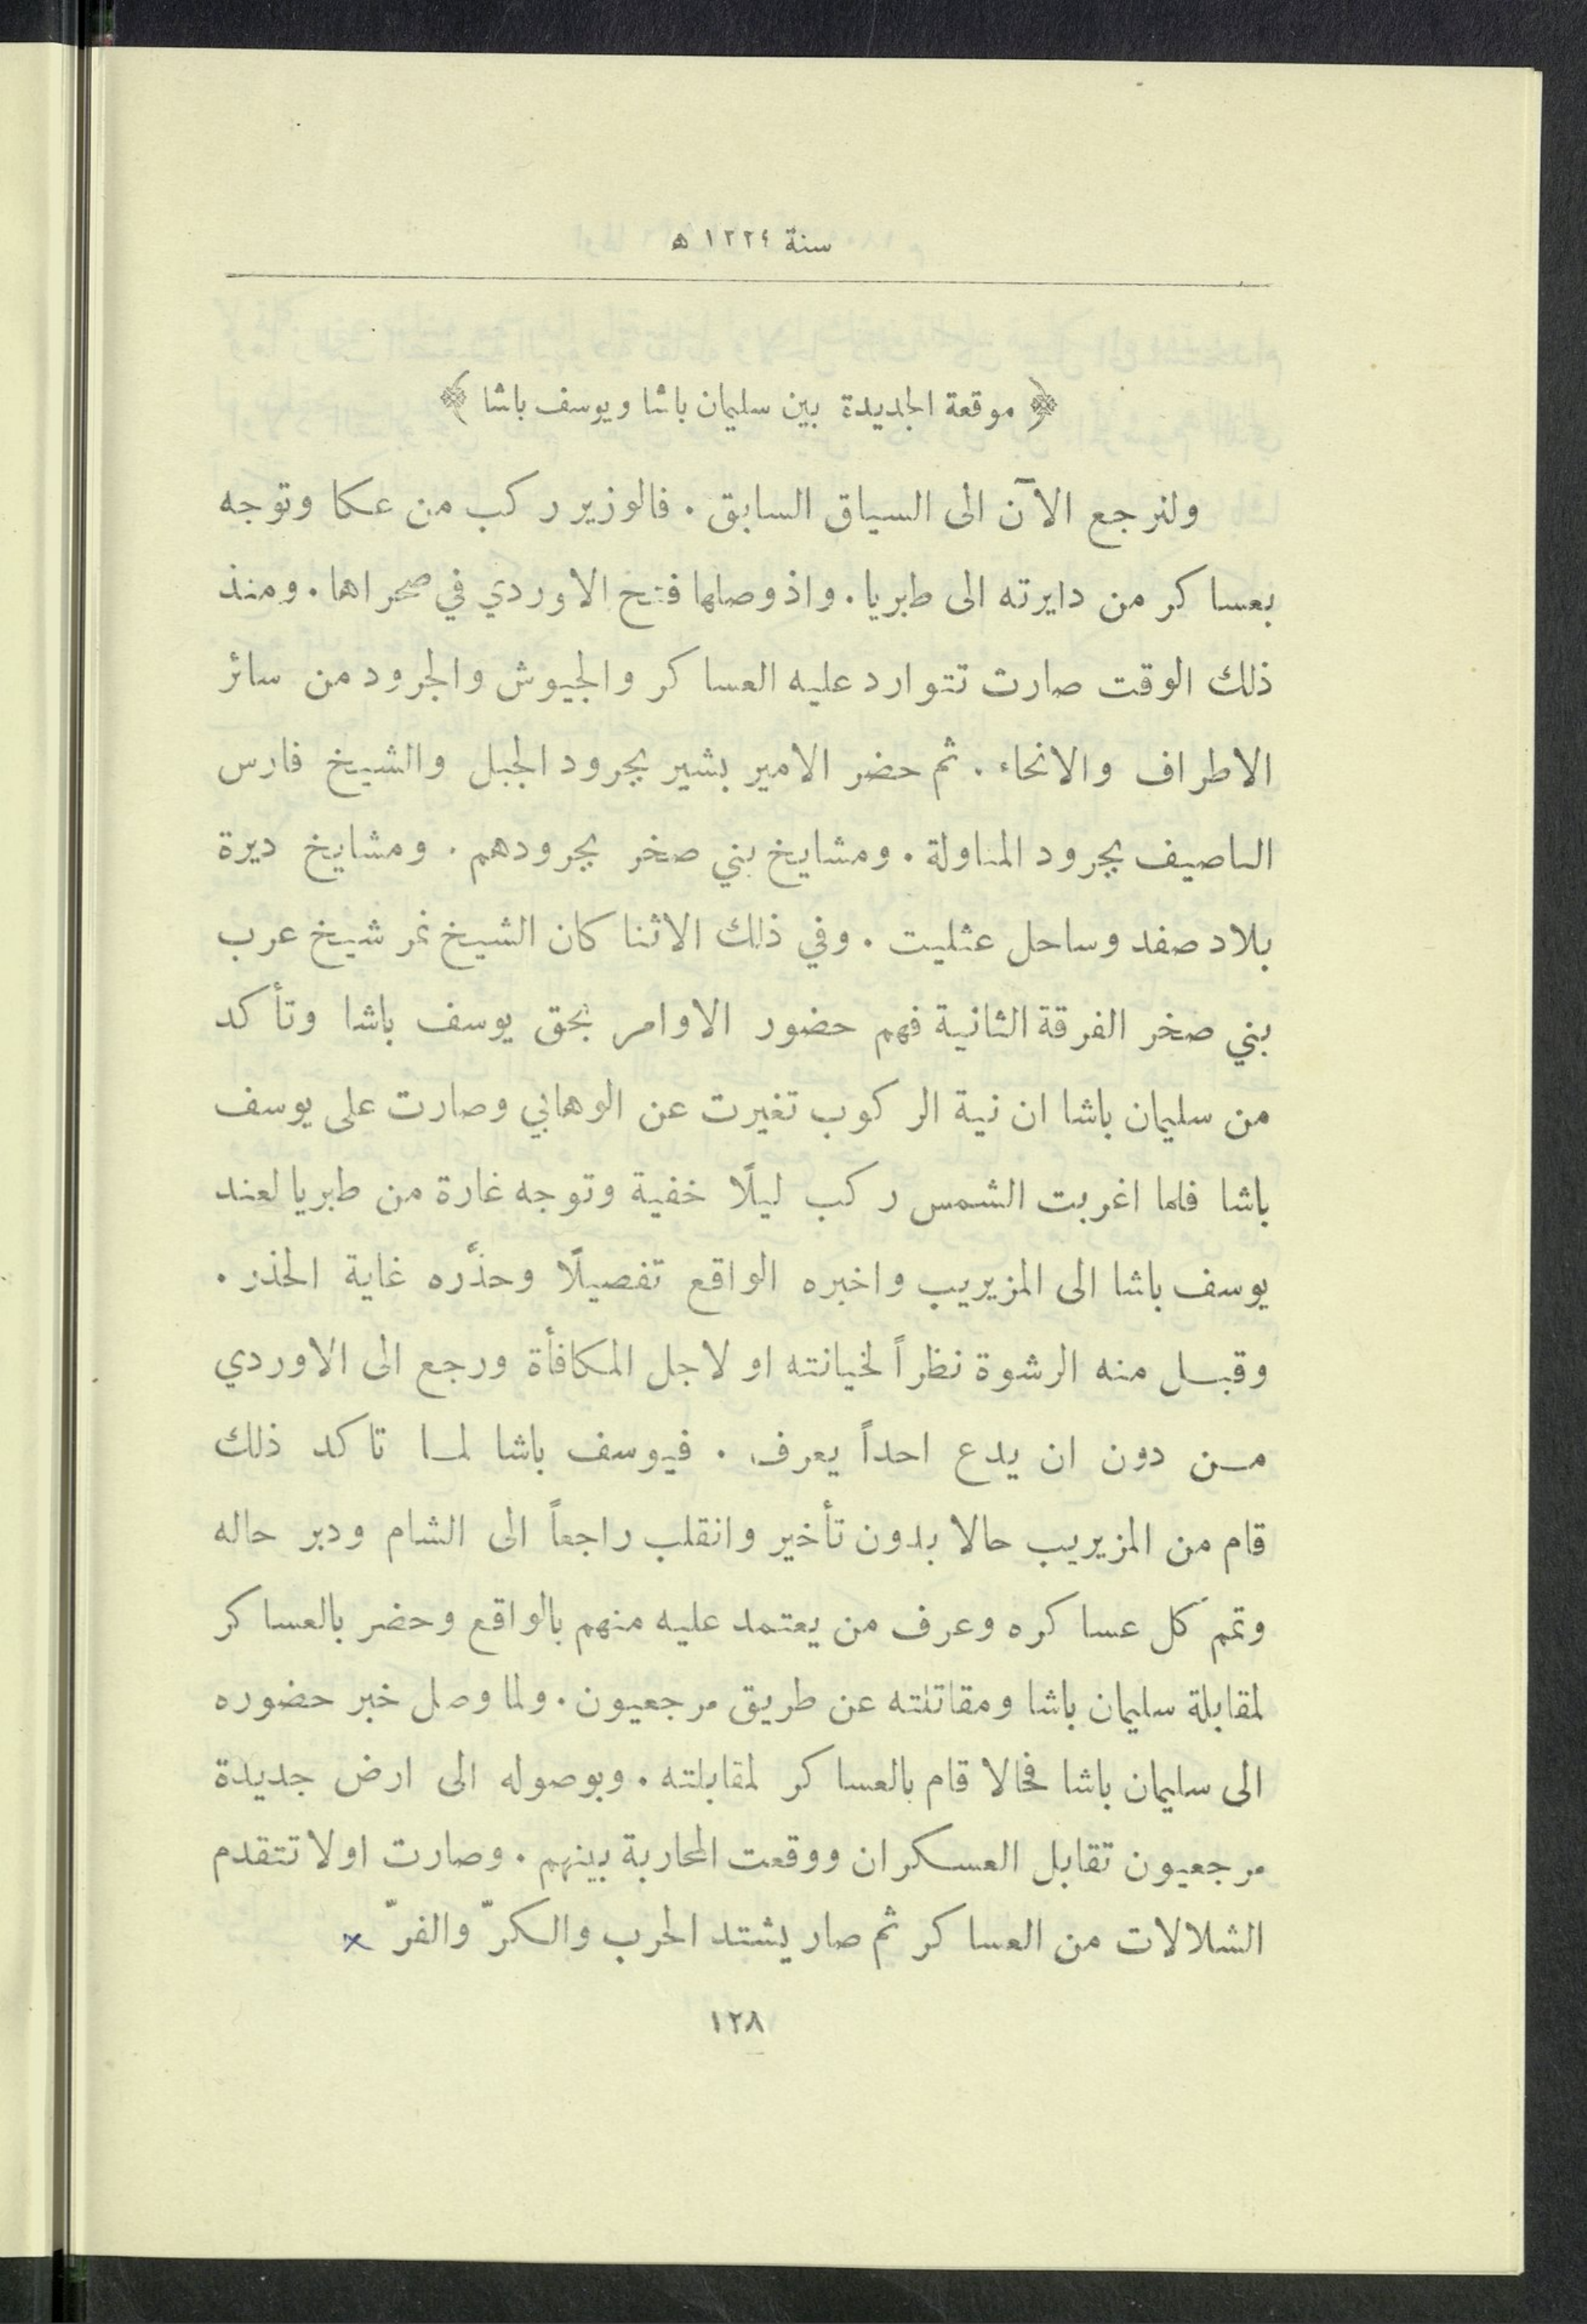 سنة ١٢٢٤ ه
﴿ موقعة الجديدة بين سليمان باشا ويوسف باشا ﴾
ولنرجع الآن الى السياق السابق . فالوزير ركب من عكا وتوجه
بعساكر من دايرته الى طبريا . واذ وصلها فتح الاوردي في صحراها . ومنذ
ذلك الوقت صارت تتوارد عليه العساكر والجيوش والجرود من سائر
الاطراف والانحاء . ثم حضر الامير بشير بجرود الجبل والشيخ فارس
الناصيف بجرود المناولة . ومشايخ بني صخر بجرودهم . ومشايخ ديرة
بلاد صفد وساحل عثليت . وفي ذلك الاثنا كان الشيخ نمر شيخ عرب
بني صخر الفرقة الثانية فهم حضور الاوامر بحق يوسف باشا وتأكد
من سليمان باشا ان نية الركوب تغيرت عن الوهابي وصارت على يوسف
باشا فلما اغربت الشمس ركب ليلًا خفية وتوجه غارة من طبريا لعند
يوسف باشا الى المزيريب واخبره الواقع تفصيلًا وحذَّره غاية الحذر .
وقبل منه الرشوة نظراً لخيانته او لاجل المكافأة ورجع الى الاوردي
من دون ان يدع احداً يعرف . فيوسف باشا لما تاكد ذلك
قام من المزيريب حالا بدون تأخير وانقلب راجعاً الى الشام ودبر حاله
وتمم كل عساكره وعرف من يعتمد عليه منهم بالواقع وحضر بالعساكر
لمقابلة سليمان باشا ومقاتلته عن طريق مرجعيون . ولما وصل خبر حضوره
الى سليمان باشا فحالا قام بالعساكر لمقابلته . وبوصوله الى ارض جديدة
مرجعيون تقابل العسكران ووقعت المحاربة بينهم . وصارت اولا تتقدم
الشلالات من العساكر ثم صار يشتد الحرب والكرّ والفرّ ×
١٢٨